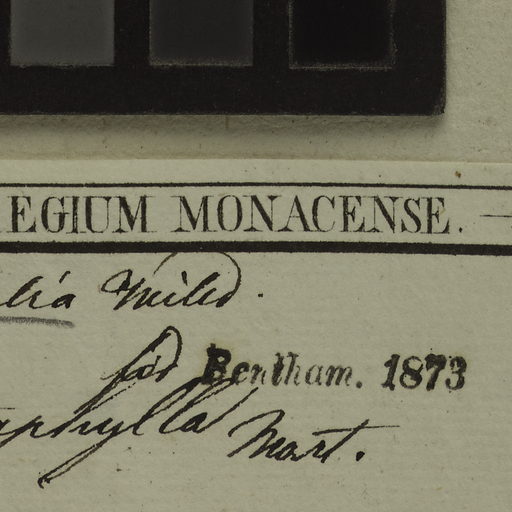 EGIUM MONACENSE.
lia Willd.
fid Bentham. 1873
aphylla Mart.